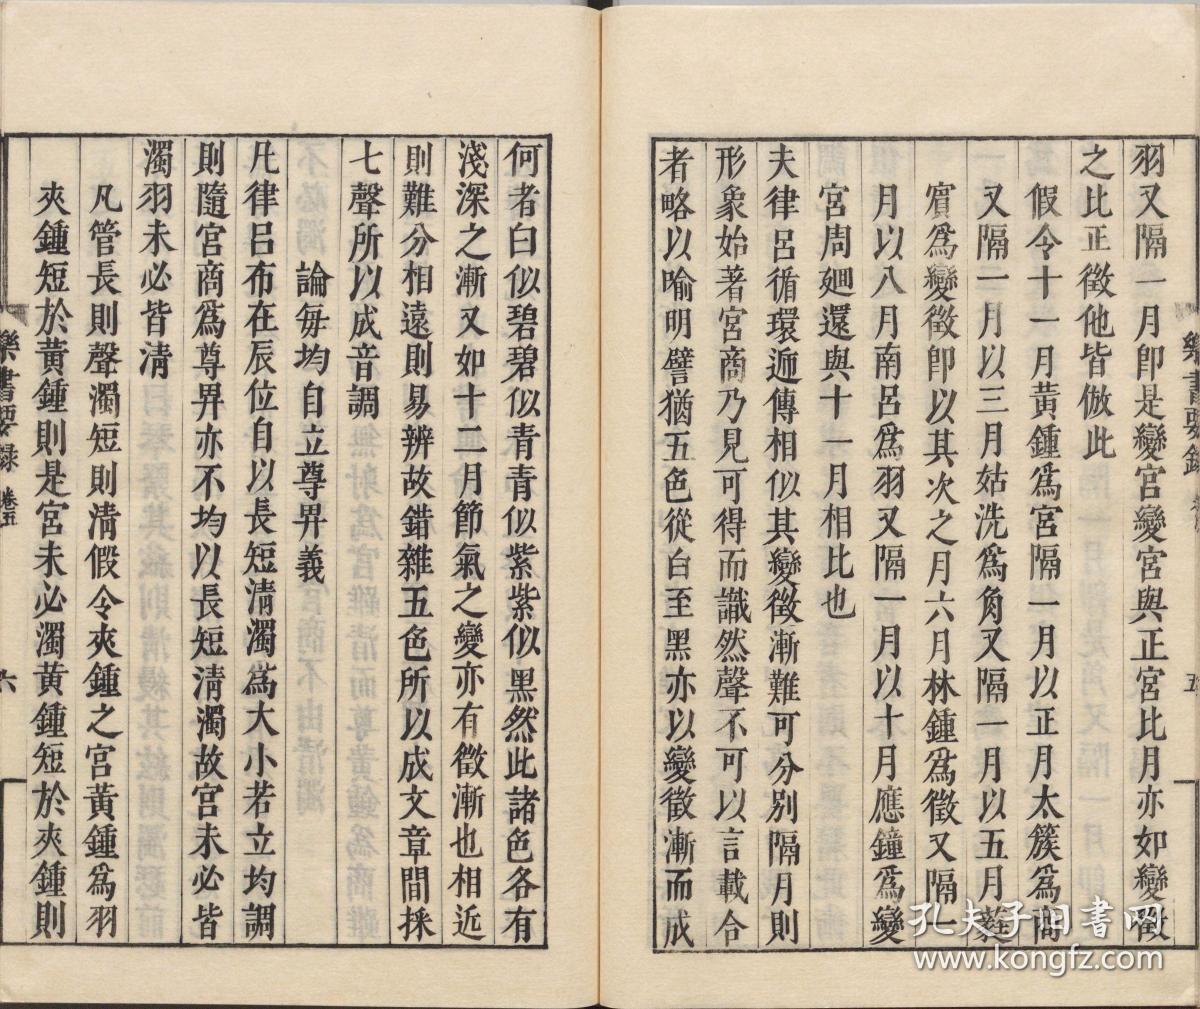 羽又隔一月卽是變宮變宮與正宮比月亦如變徵
之比正徵他皆倣此
假令十一月黃鍾爲宮隔一月以正月太簇爲商
又隔一月以三月姑洗爲角又隔一月以五月蕤
賓爲變徵卽以其次之月六月林鍾爲徵又隔一
月以八月南呂爲羽又隔一月以十月應鐘爲變
宮周廻還與十一月相比也
夫律呂循環遞傳相似其變徵漸難可分別隔月則
形象始著宮商乃見可得而識然聲不可以言載合
者略以喻明譬猶五色從白至黑亦以變徵漸而成
樂書要錄
五
何者白似碧碧似青青似紫紫似黑然此諸色各有
淺深之漸又如十二月節氣之變亦有徵漸也相近
則難分相遠則易辨故錯雜五色所以成文章間採
七聲所以成音調
論每均自立尊畀義
凡律呂布在辰位自以長短清濁爲大小若立均調
則隨宮商爲尊畀亦不均以長短清濁故宮未必皆
濁羽未必皆清
凡管長則聲濁短則清假令夾鍾之宮黃鍾爲羽
夾鍾短於黃鍾則是宮未必濁黃鍾短於夾鍾則
樂書要錄 卷五
六
孔夫子旧书网
www.kongfz.com